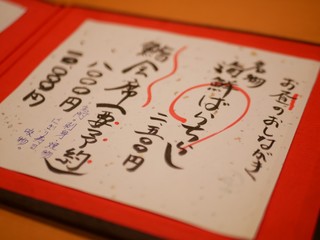 お昼のおしながき
名物
海鮮ばらちらし
二、五〇〇円
鮨会席（要予約）
八〇〇〇円
一〇〇〇〇円